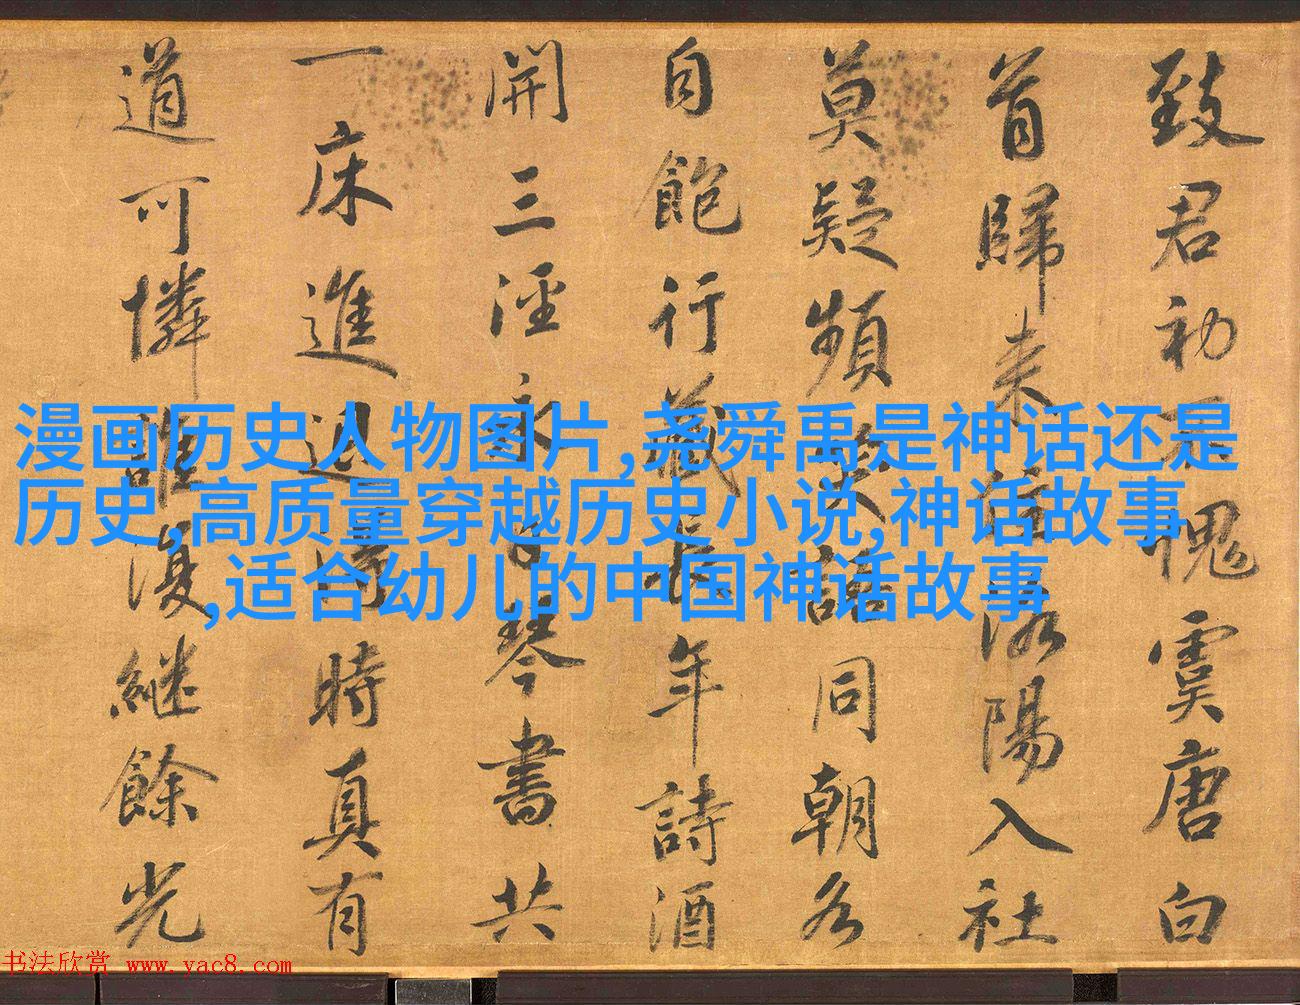 致君初不愧虞唐白
首歸来訪洛陽入社
莫疑頻笑語同朝各
自飽行藏長年詩酒
開三涇永日琴書共
一床進退得時真有
道可憐誰復繼餘光
漫画历史人物图片,尧舜禹是神话还是
历史,高质量穿越历史小说,神话故事
,适合幼儿的中国神话故事
书法欣赏 www.yac8.com